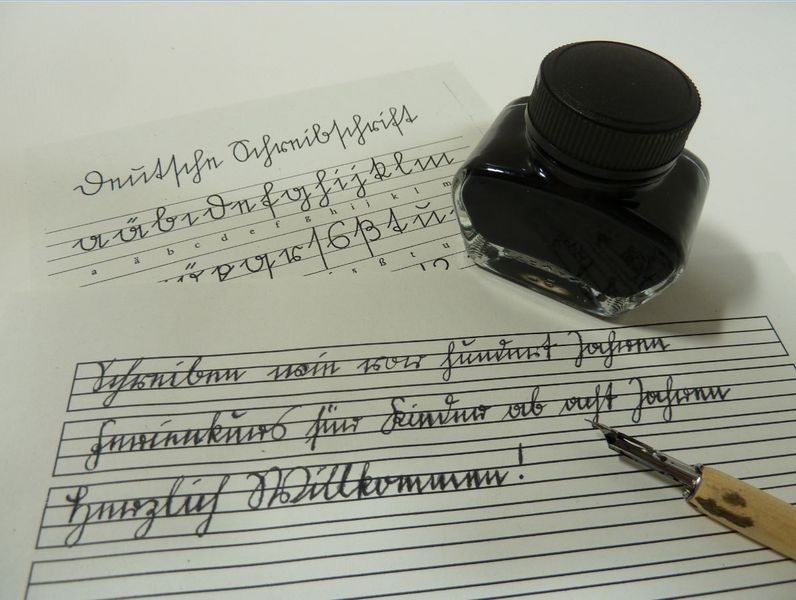 Deutsche Schreibschrift
a ä b c d e f g h i j k l m
a ä b c d e f g h i j k l m
s ß t u
s ß t u
Schreiben wie vor hundert Jahren
Ferienkurs für Kinder ab acht Jahren
Herzlich Willkommen!